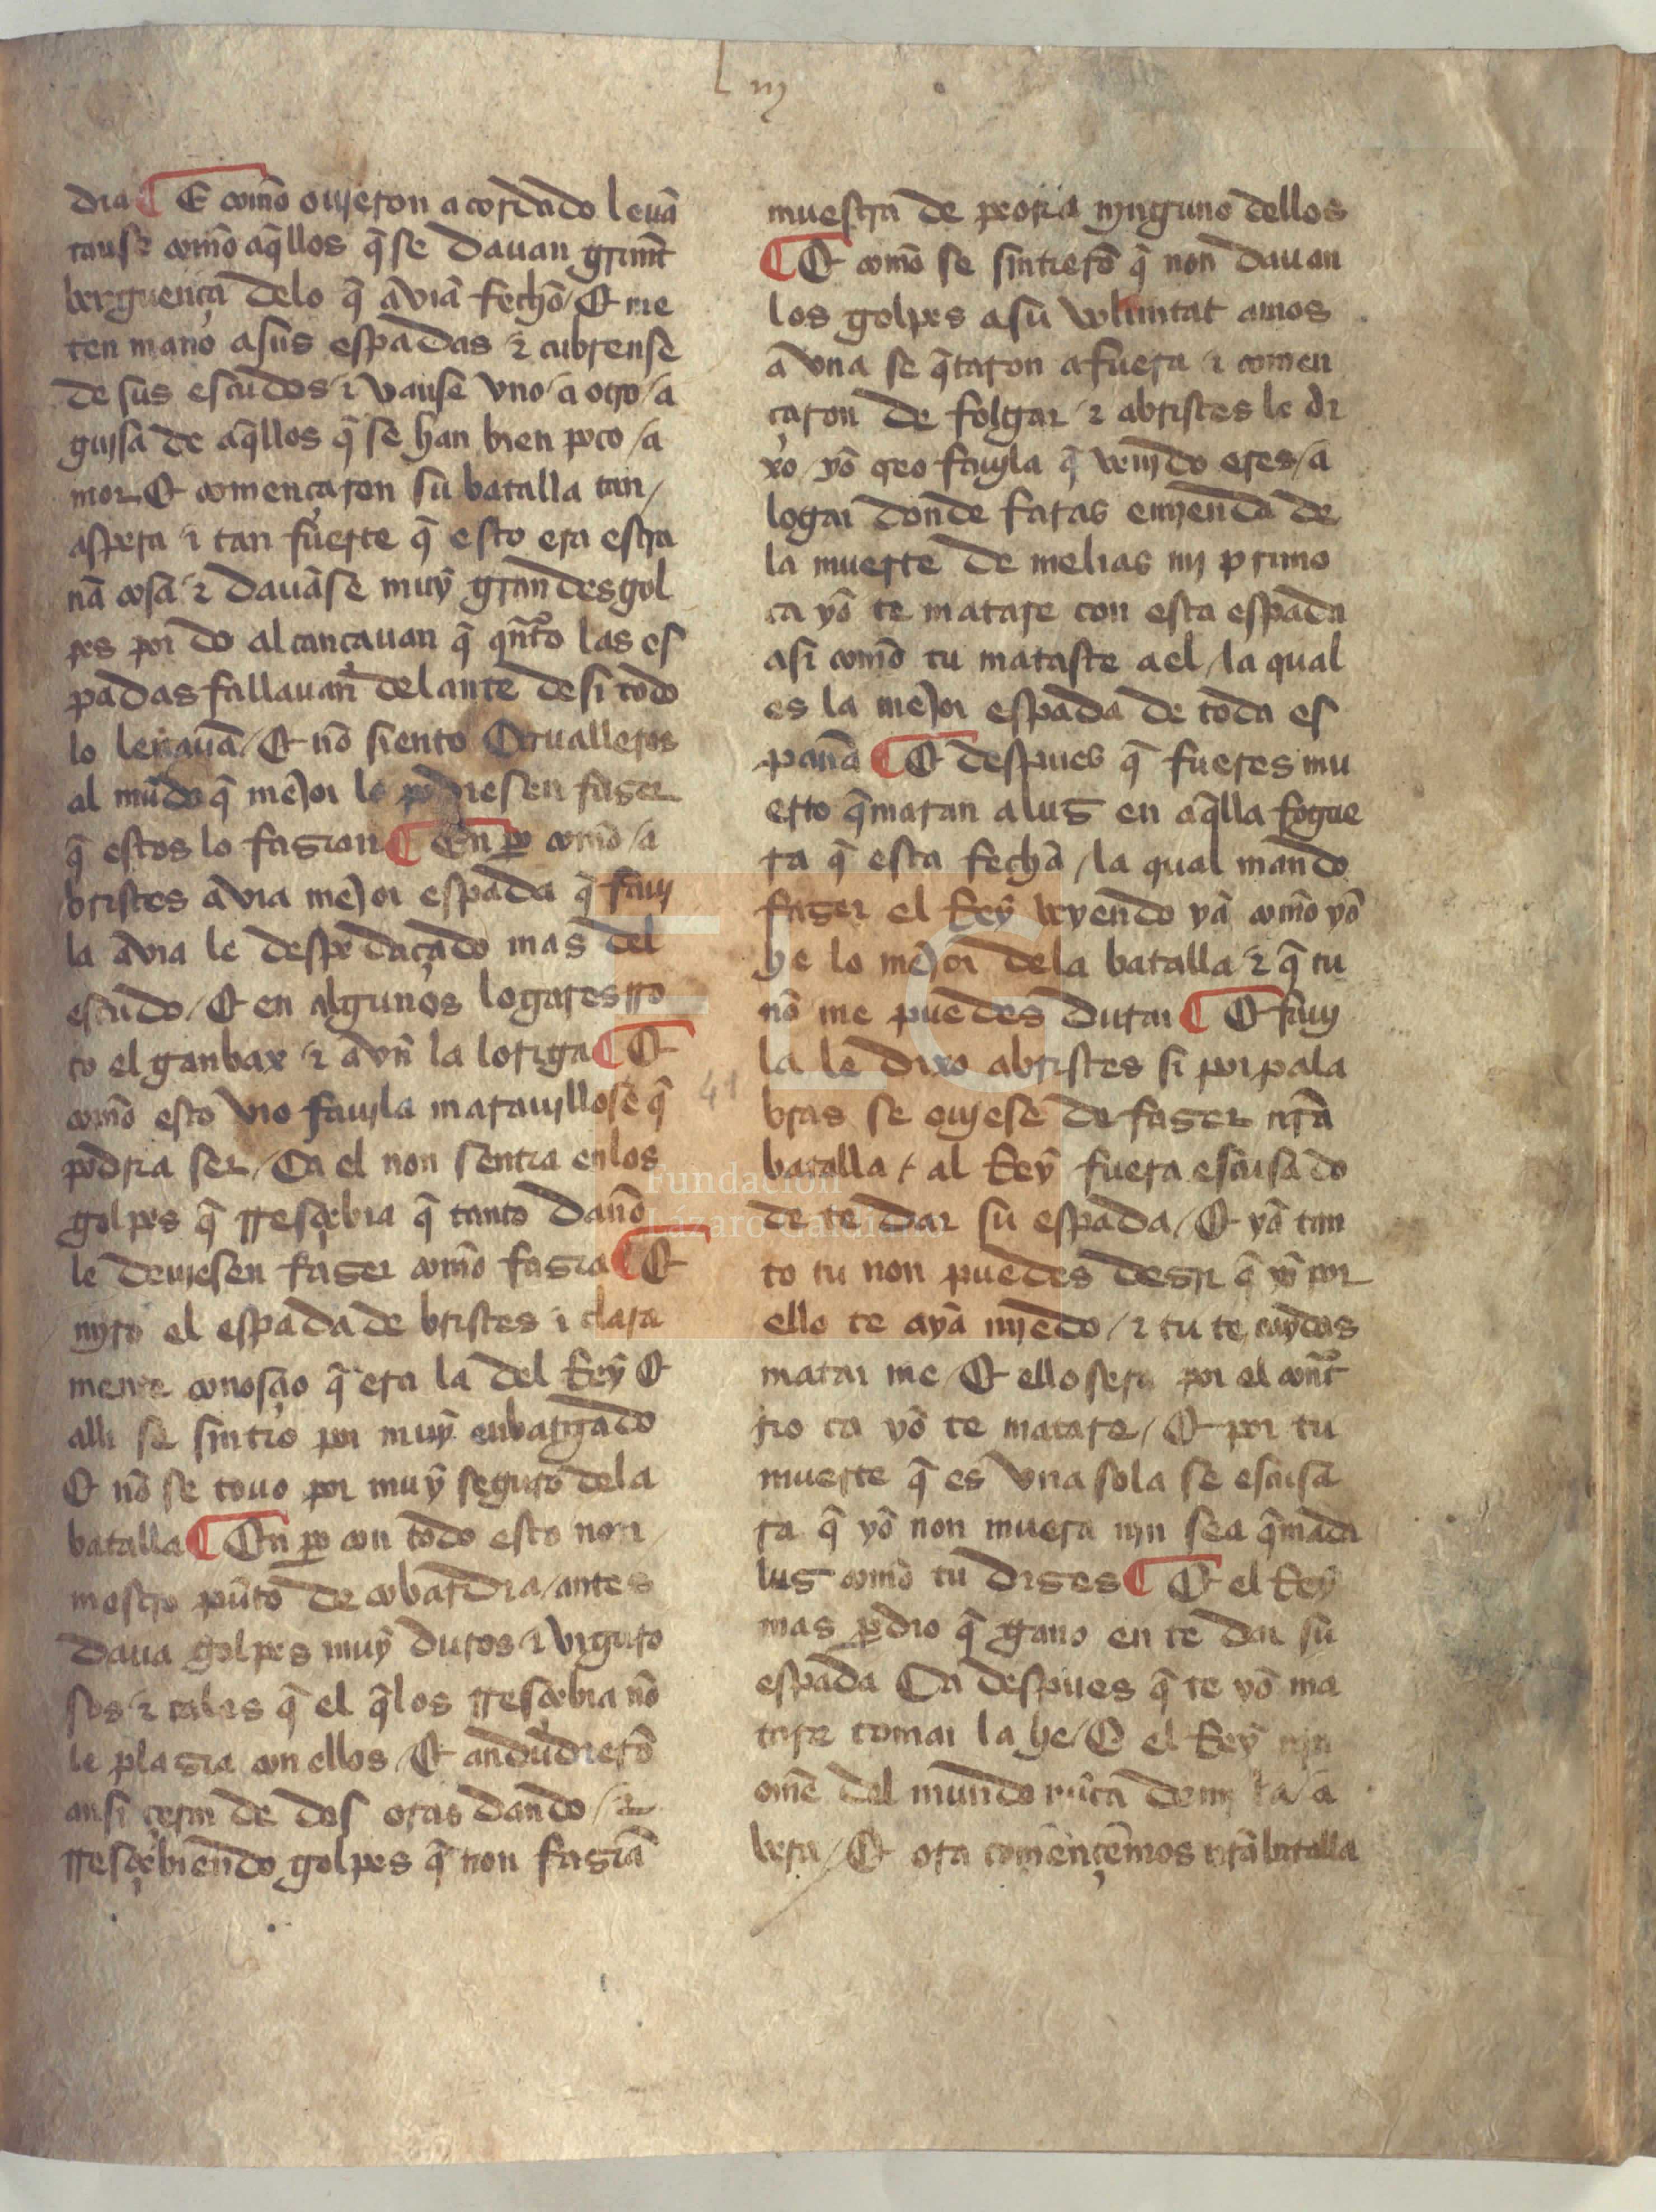 L iij
dia ¶ E com̃o ouieron acordado leuã
tanse com̃o aq̃llos q̃ se dauan grãnt
berguença delo q̃ aviã fecho / Et me
ten mano a sus espadas ⁊ cubrense
de sus escudos / ⁊ vanse vno / a otro / a
guisa de aq̃llos q̃ se han bien poco / a
mor Et començaron su batalla tan /
aspera ⁊ tan fuerte q̃ esto era estra
nã cosa ⁊ dauãse muy grandes gol
pes por do alcançauan q̃ q̃nto las es
padas fallauan delante de si todo
lo leuauã / Et nõ siento Caualleros
al mũdo q̃ mejor lo podiesen faser
q̃ estos lo fasian ¶ En p̱o com̃o / a
bristes avia mejor espada q̃ faui
la avia le despedaçado mas del
escudo / Et en algunos logares rro
to el ganbax ⁊ avñ la loriga ¶ Et
com̃o esto vio fauila marauillose q̃
podria ser / Ca el non sentia enlos
golpes q̃ rresçebia q̃ tanto daño
le deuiesen faser com̃o fasia ¶ Et
miro el espada de bristes ⁊ clara
mente conosçio q̃ era la del Rey Et
alli se sintio por muy enbargado
Et nõ se touo por muy seguro dela
batalla ¶ En p̱o con todo esto non
mostro pũto de cobardia / antes
daua golpes muy duros ⁊ viguro
sos ⁊ tales q̃ el q̃ los rresçebia nõ
le plasia con ellos / Et andudierõ
ansi çerca de dos oras dando / ⁊
rresçebiendo golpes q̃ non fasiã
muestra de peoria ninguno dellos
¶ Et com̃o se sintierõ q̃ non dauan
los golpes a su voluntat amos
a vna se q̃taron afuera ⁊ comen
çaron de folgar / ⁊ abristes le di
xo yo creo fauila q̃ venido eres / a
logar donde faras emienda de
la muerte de melias mi primo
ca yo te matare con esta espada
asi com̃o tu mataste a el / la qual
es la mejor espada de toda es
pana ¶ Et despues q̃ fueres mu
erto q̃maran a lus en aq̃lla fogue
ra q̃ esta fecha / la qual mando
faser el Rey veyendo ya com̃o yo
he lo mejor dela batalla ⁊ q̃ tu
nõ me puedes durar ¶ Et faui
la le dixo abristes si por pala
bras se ouiese de faser nr̃a
batalla / al Rey fuera escusado
de te dar su espada / Et yo tan
to tu non puedes desir q̃ yo por
ello te aya miedo / ⁊ tu te cuydas
matar me / Et ello sera por el cont
rio ca yo te matare / Et por tu
muerte q̃ es vna sola se escusa
ra q̃ yo non muera nin sea q̃mada
lus com̃o tu dises ¶ Et el Rey
mas p̱dio q̃ gano en te dar su
espada Ca despues q̃ te yo ma
tare tomar la he / E el Rey nin
omẽ del mundo nũca de mi la / a
bera / Et ora comẽnçemos nr̃a batalla
41
Fundación
Lázaro Galdiano
FLG